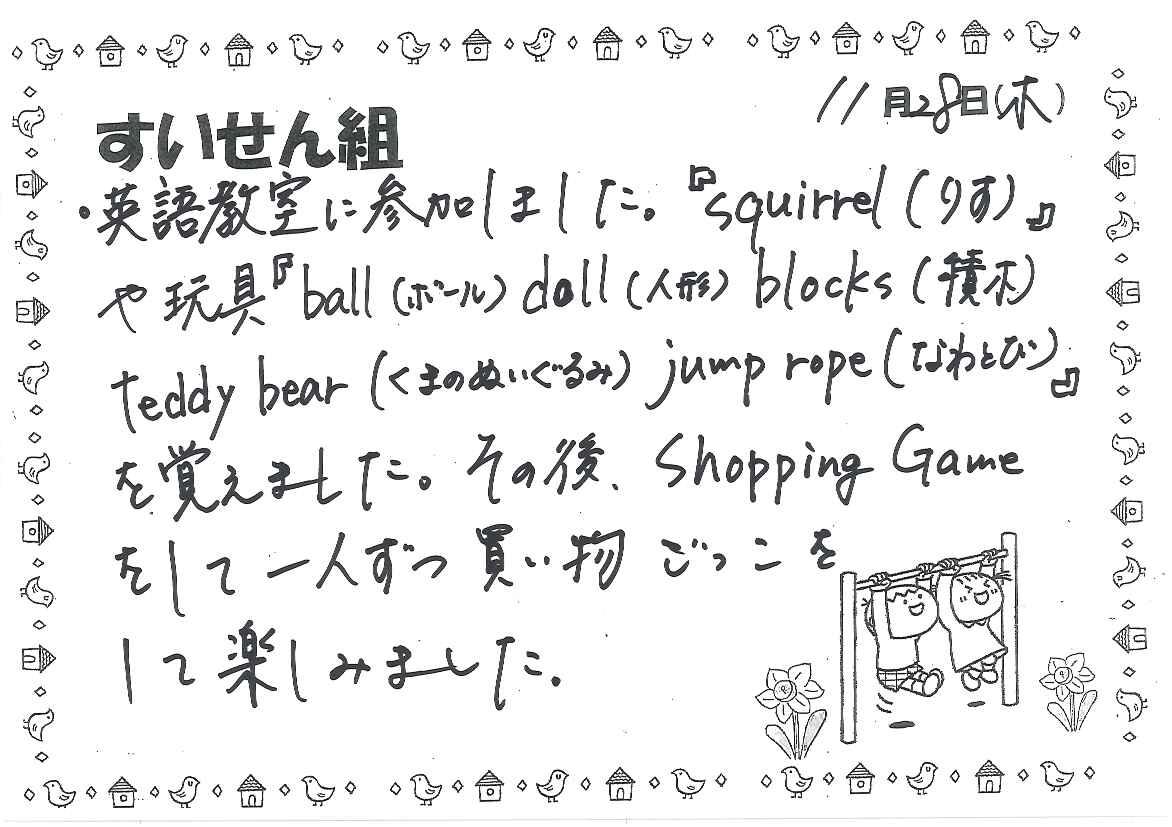 11月28日(木)
すいせん組
・英語教室に参加しました。『squirrel(りす)』
や玩具『ball(ボール)doll(人形)blocks(積木)
teddy bear(くまのぬいぐるみ)jump rope(なわとび)』
を覚えました。その後、Shopping Game
をして一人ずつ買い物ごっこを
して楽しみました。